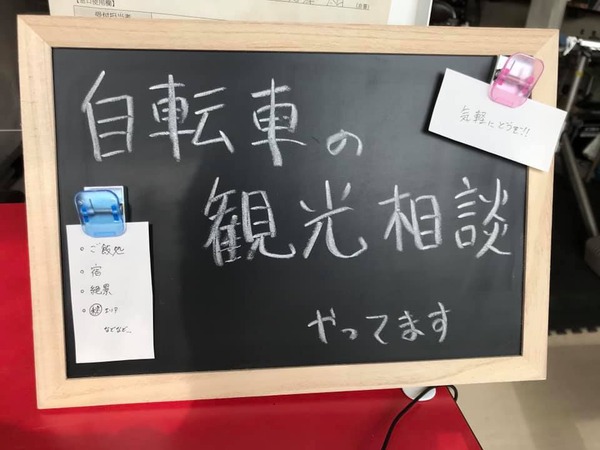 自転車の
観光相談
やってます
気軽にどうぞ!!
ご飯処
宿
絶景
などなど…